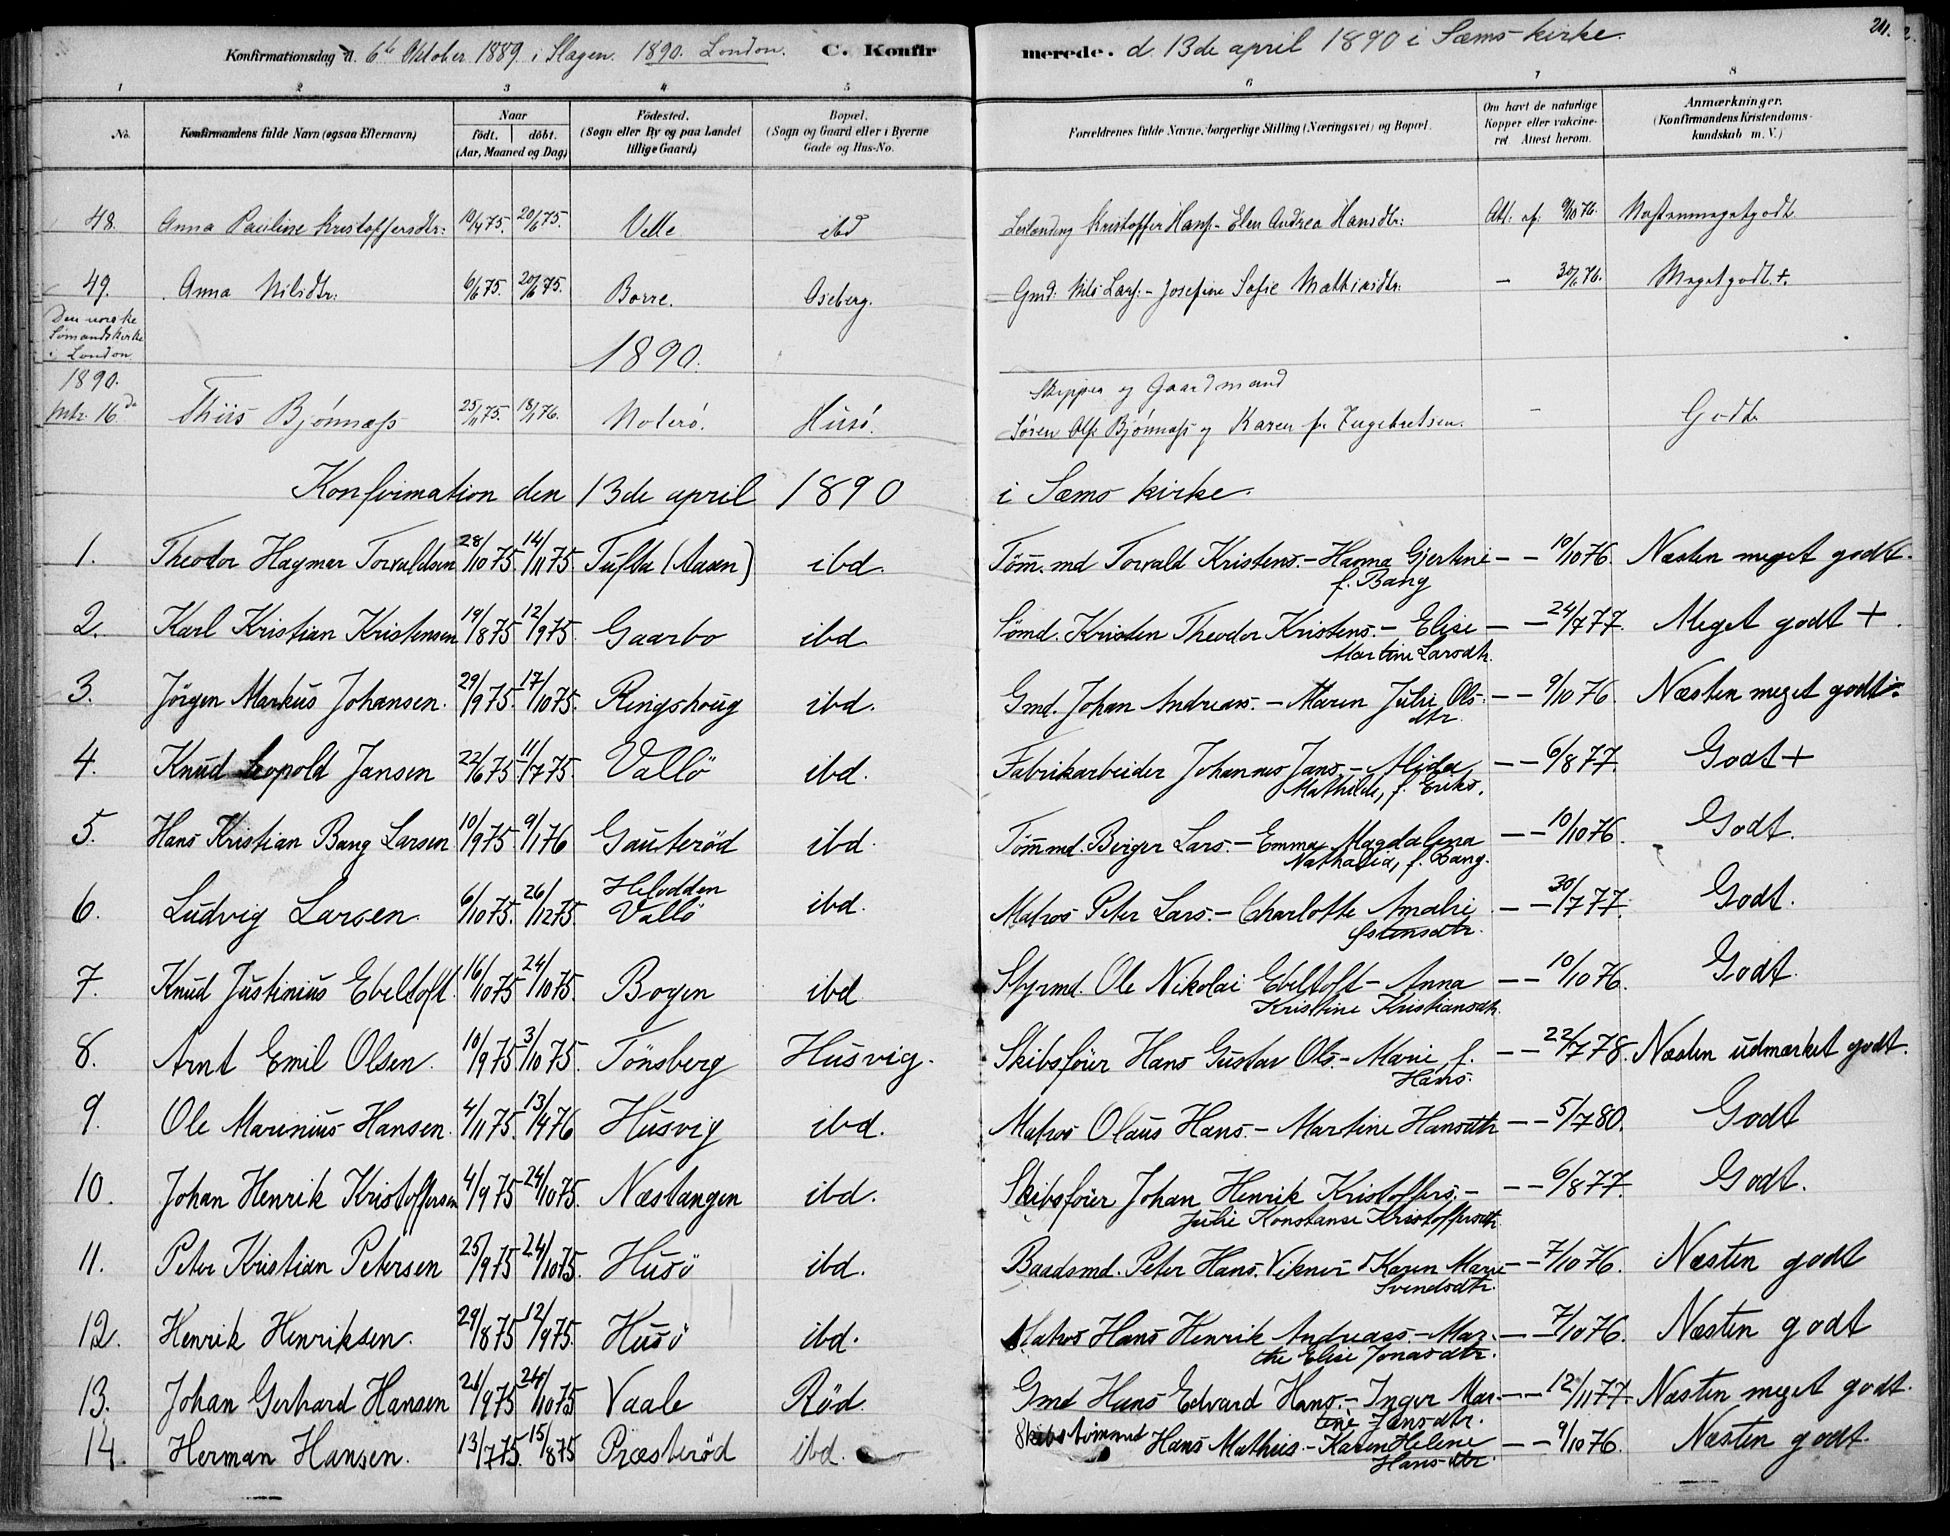 Konfirmationsdag d. 6te Oktober 1889. i Slagen. 1890. London. C. Konfir
merede. d. 13de april 1890 i Sæms-kirke.
211.
1 2 3 4 5 6 7 8
No.
Konfirmandens fulde Navn (ogsaa Efternavn)
Naar
født. døbt.
(Aar, Maaned og Dag)
Fødested.
(Sogn eller By og paa Landet
tillige Gaard)
Bopæl.
(Sogn og Gaard eller i Byerne
Gade og Hus-No.
Forældrenes fulde Navne, borgerlige Stilling (Næringsvei) og Bopæl.
Om havt de naturlige
Kopper eller vakcine-
ret. Attest herom.
Anmærkninger.
(Konfirmandens Kristendoms-
kundskab m. V.)
48. Anna Pauline Kristoffersdtr: 10/4 75. 20/6 75. Velle ibd Kristoffer Hans.- Elen Andrea Hansdtr: Att. af. 9/10 76. Næstenmegetgodt
49. Anna Nilsdtr: 6/6 75. 20/6 75. Borre. Oseberg. Gmd. Nils Lars.- Josefine Sofie Mathisdtr: — 30/6 76. Megetgodt+.
Den norske
Sømandskirke
i London
1890.
1890.
Skipper og Gaardmand
16de Thiis Bjønnæss 25/11 75. 18/1 76. Noterø. Husø. Søren Ols. Bjønnæss og Karen f. Ingebretsen. - Godt
Konfirmation den 13de april 1890 i Sæms kirke.
1. Theodor Hagmar Torvaldsen 28/10 75. 14/11 75 Tufta (Aasen) ibd. Tøm.md Torvald Kristens.- Hanna Gjertine — — 10/10 76. Næsten meget godt.
f. Bang
2. Karl Kristian Kristensen 19/8 75 12/9 75. Gaarbo ibd Sømd. Kristen Theodor Kristens.- Elise — — 24/7 77. Meget godt +.
Martine Larsdtr.
3. Jörgen Markus Johansen. 29/9 75. 17/10 75. Ringshoug ibd. Gmd. Johan Andreas.- Maren Julie Ols- — — 9/10 76. Næsten meget godt.
dtr.
4. Knud Leopold Jansen 22/6 75 11/7 75. Vallö ibd. Fabrikarbeider Johannes Jans.- Alida — — 6/8 77. Godt +
Mathilde, f. Eriks.
5. Hans Kristian Bang Larsen 10/9 75. 9/1 76 Gauteröd ibd. Tømmd. Berger Lars.- Emma Magdalena — — 10/10 76. Godt.
Nathalia, f. Bang.
6. Ludvig Larsen. 6/10 75. 26/12 75. Helodden ibd. Matros Peter Lars.- Charlotte Amalie — — 30/7 77. Godt.
Vallö Östensdtr.
7. Knud Justinius Ebeltoft. 16/10 75 24/10 75. Bogen ibd Styrmd. Ole Nikolai Ebeltoft - Anna — — 10/10 76. Godt.
Kristine Kristiansdtr.
8. Arnt Emil Olsen. 10/9 75 3/10 75. Tönsberg Husvig. Skibsföier Hans Gustav Ols.- Marie, f. — — 22/7 78. Næsten udmærket godt.
Hans.
9. Ole Marinius Hansen. 4/11 75. 13/4 76 Husvig ibd. Matros Olaus Hans.- Martine Hansdtr — — 5/7 80. Godt
10. Johan Henrik Kristoffersen 4/9 75 24/10 75. Næstangen ibd. Skibsföier Johan Henrik Kristoffers.- — — 6/8 77. Godt.
Julie Konstanse Kristoffersdtr.
11. Peter Kristian Petersen 25/9 75 24/10 75. Husö ibd. Baadsmd. Peter Hans. Vikner & Karen Marie — — 7/10 76. Næsten godt
Svendsdtr.
12. Henrik Henriksen. 29/8 75 12/9 75. Husö ibd. Matros Hans Henrik Andreass.- Mar- — — 7/10 76. Næsten godt
the Elise Jonasdtr.
13. Johan Gerhard Hansen 21/9 75 24/10 75 Vaale Röd. Gmd Hans Edvard Hans.- Inger Mar- — — 12/11 77. Næsten meget godt.
tine Jansdtr.
14. Herman Hansen. 13/7 75. 15/8 75 Præsteröd ibd. Skibstømmd Hans Mathias - Karen Helene — — 9/10 76. Næsten godt.
Hansdtr.